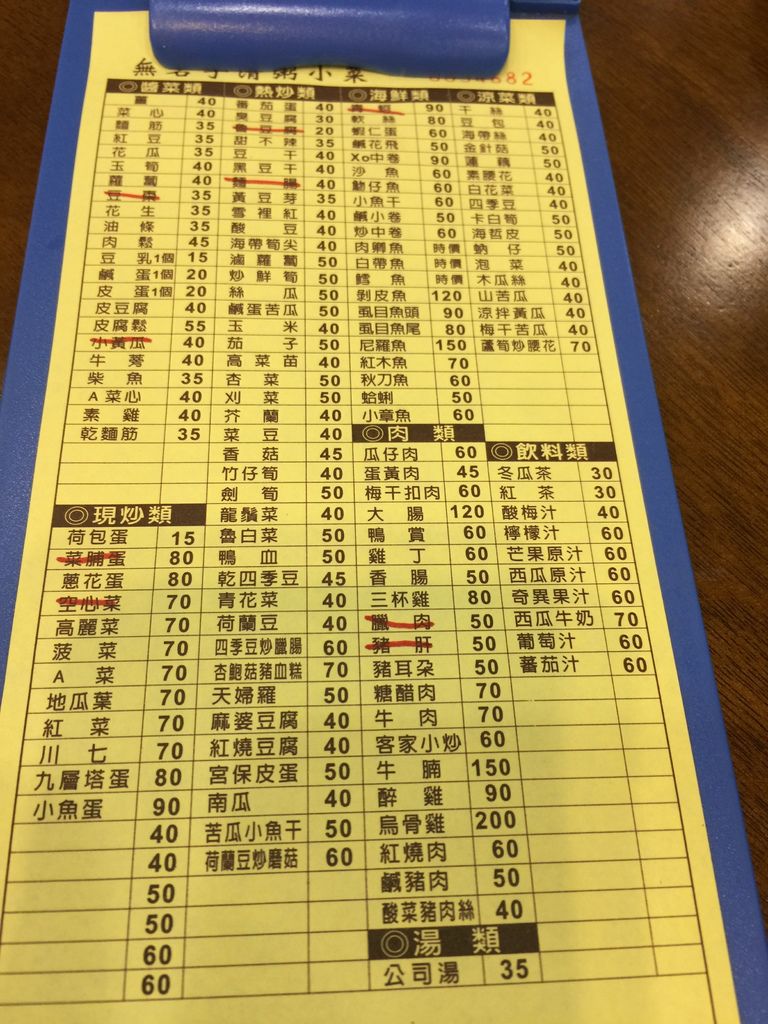 無名子清粥小菜
◎醬菜類
薑 40
菜心 40
麵筋 35
紅豆 35
花瓜 35
玉筍 40
蘿蔔 40
豆棗 35
花生 35
油條 35
肉鬆 45
豆乳1個 15
鹹蛋1個 20
皮蛋1個 20
皮豆腐 40
皮腐鬆 55
小黃瓜 40
牛蒡 40
柴魚 35
A菜心 40
素雞 40
乾麵筋 35
◎現炒類
荷包蛋 15
菜脯蛋 80
蔥花蛋 80
空心菜 70
高麗菜 70
菠菜 70
A菜 70
地瓜葉 70
紅菜 70
川七 70
九層塔蛋 80
小魚蛋 90
40
40
50
50
60
60
◎熱炒類
番茄蛋 40
臭豆腐 30
魯豆腐 20
甜不辣 35
豆干 40
黑豆干 40
麵腸 40
黃豆芽 35
雪裡紅 40
酸豆 40
海帶筍尖 40
滷蘿蔔 50
炒鮮筍 50
絲瓜 50
鹹蛋苦瓜 50
玉米 40
茄子 50
高菜苗 40
杏菜 50
刈菜 50
芥蘭 40
菜豆 40
香菇 45
竹仔筍 40
劍筍 50
龍鬚菜 40
魯白菜 50
鴨血 50
乾四季豆 45
青花菜 40
荷蘭豆 40
四季豆炒臘腸 60
杏鮑菇豬血糕 70
天婦羅 50
麻婆豆腐 40
紅燒豆腐 40
宮保皮蛋 50
南瓜 40
苦瓜小魚干 50
荷蘭豆炒磨菇 60
◎海鮮類
青蚵 90
軟絲 80
蝦仁蛋 60
鹹花飛 50
Xo中卷 90
沙魚 60
魩仔魚 60
小魚干 60
鹹小卷 50
炒中卷 60
肉鯽魚 時價
白帶魚 時價
鱈魚 時價
剝皮魚 120
虱目魚頭 90
虱目魚尾 80
尼羅魚 150
紅木魚 70
秋刀魚 60
蛤蜊 50
小章魚 60
◎肉類
瓜仔肉 60
蛋黃肉 45
梅干扣肉 60
大腸 120
鴨賞 60
雞丁 60
香腸 50
三杯雞 80
臘肉 50
豬肝 50
豬耳朵 50
糖醋肉 70
牛肉 70
客家小炒 60
牛腩 150
醉雞 90
烏骨雞 200
紅燒肉 60
鹹豬肉 50
酸菜豬肉絲 40
◎湯類
公司湯 35
◎涼菜類
干絲 40
豆包 40
海帶絲 40
金針菇 50
蓮藕 50
素腰花 40
白花菜 40
四季豆 40
卡白筍 50
海哲皮 50
蚋仔 50
泡菜 40
木瓜絲 40
山苦瓜 40
涼拌黃瓜 40
梅干苦瓜 40
蘆筍炒腰花 70
◎飲料類
冬瓜茶 30
紅茶 30
酸梅汁 40
檸檬汁 60
芒果原汁 60
西瓜原汁 60
奇異果汁 60
西瓜牛奶 70
葡萄汁 60
蕃茄汁 60